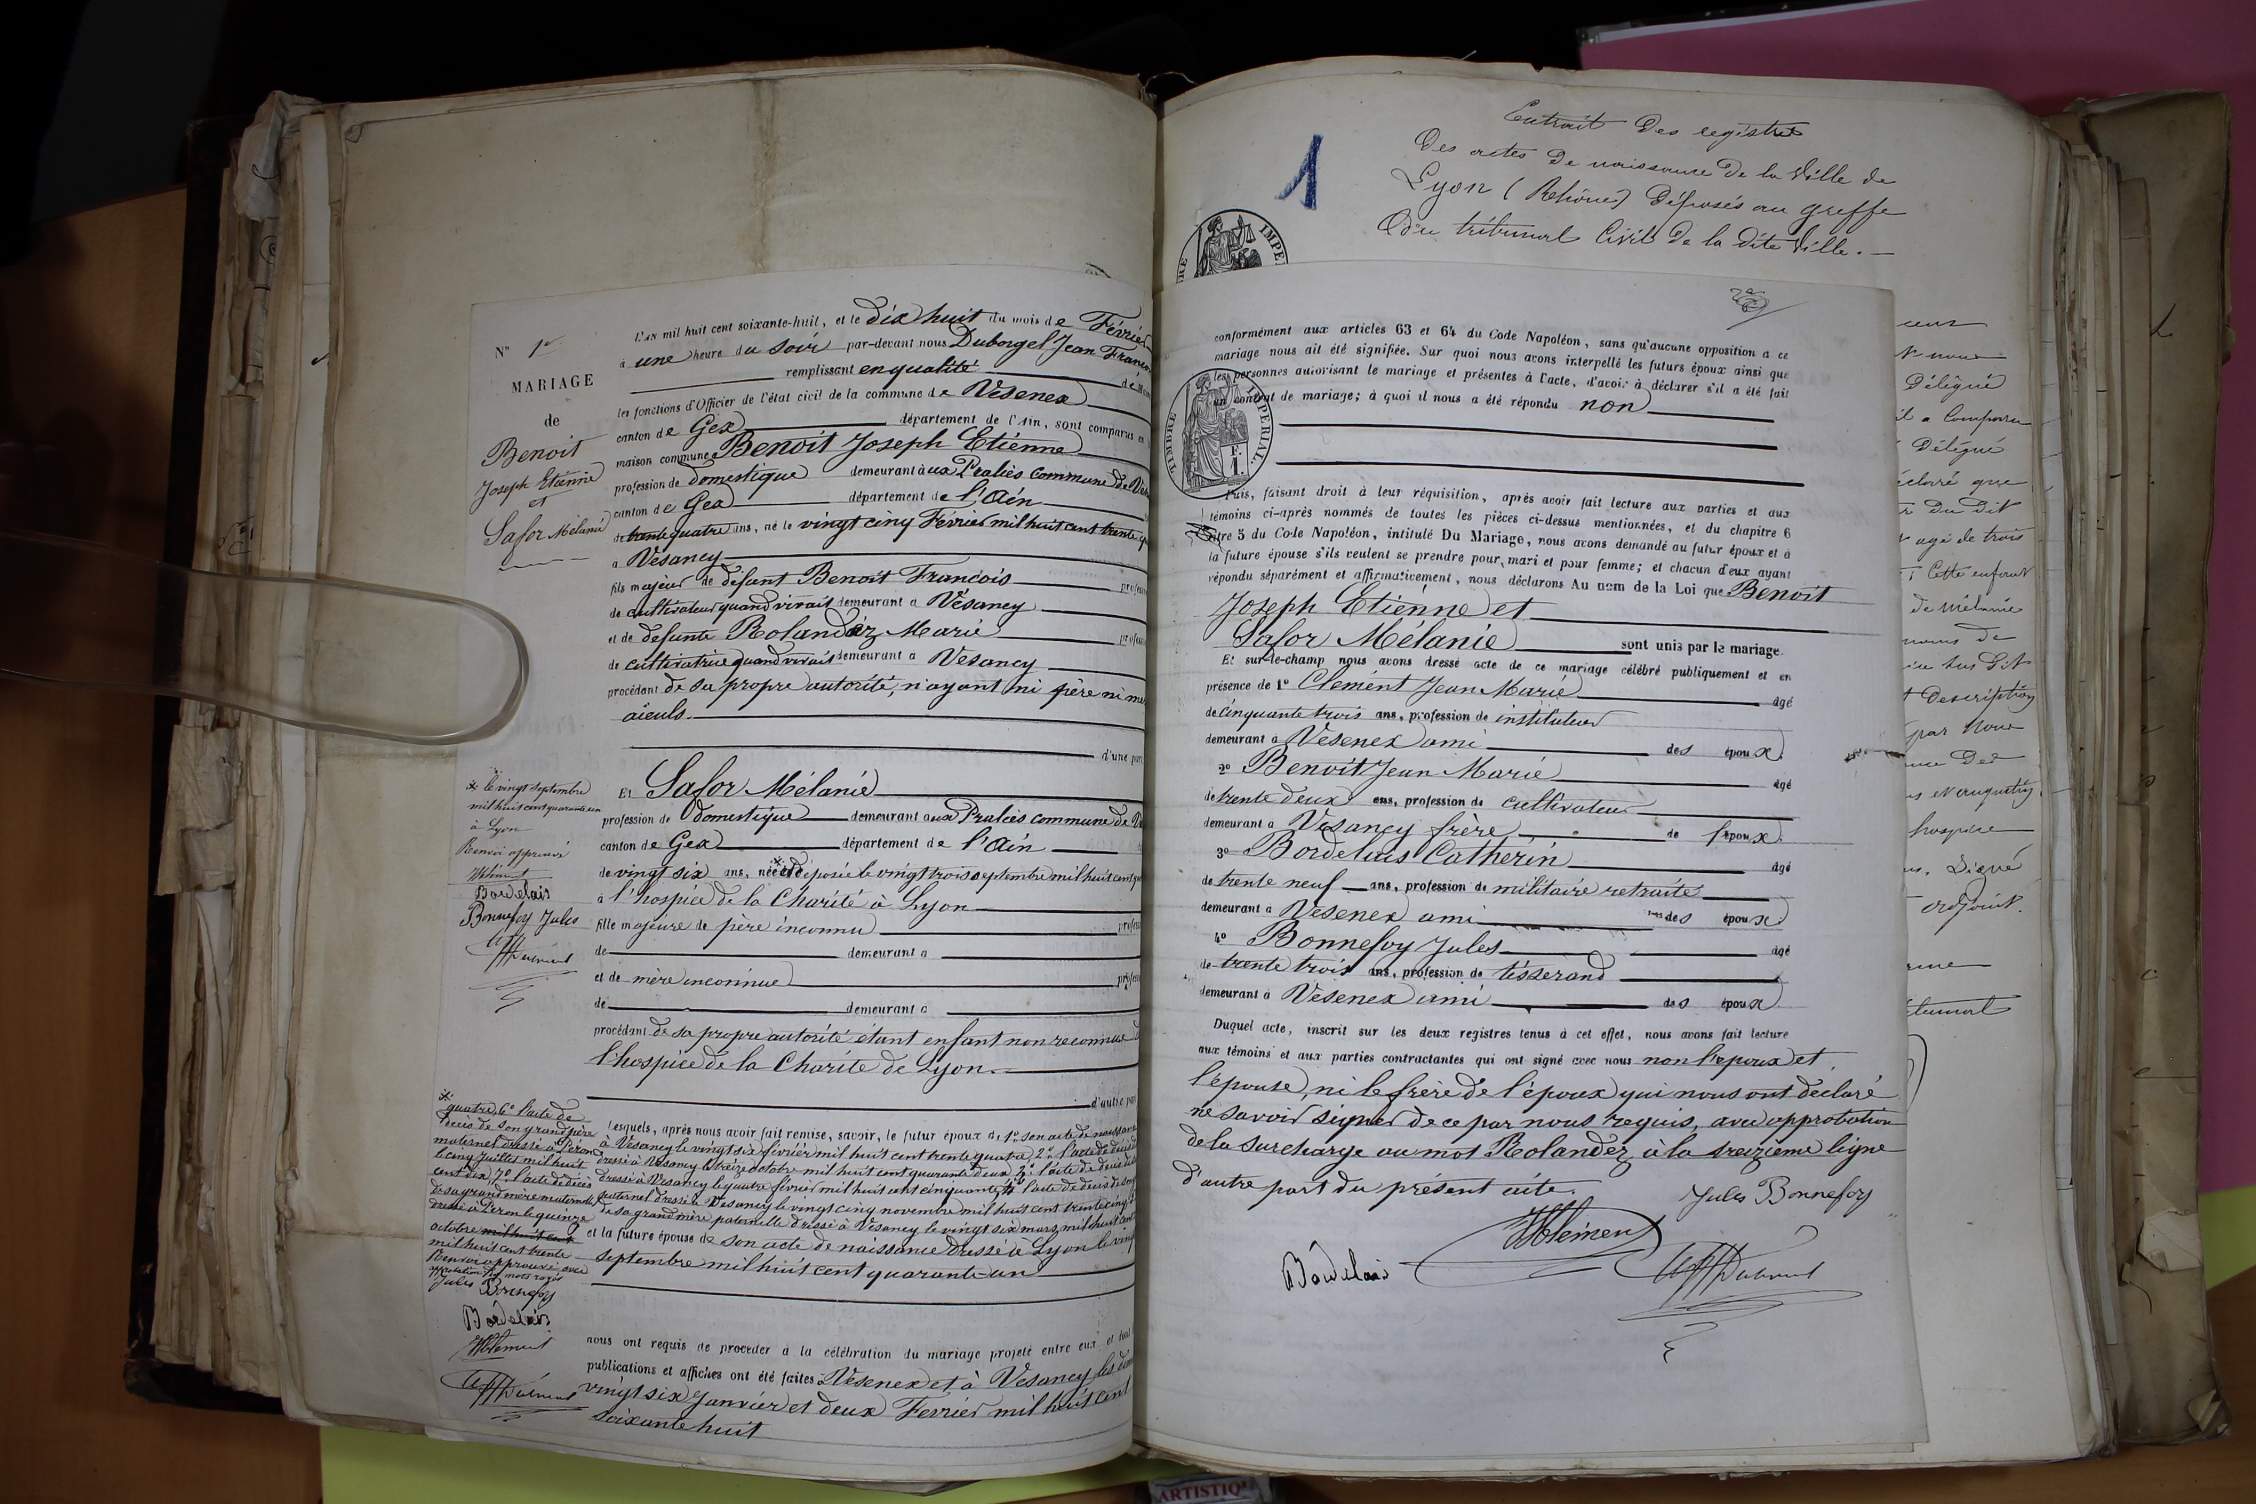 N° 1er
MARIAGE
de
Benoit
Joseph Etienne
et
Safor Mélanie
L'AN mil huit cent soixante-huit, et le dix huit du mois de Février
à une heure du soir par-devant nous Duborgel Jean
remplissant en qualité
les fonctions d'Officier de l'état civil de la commune de Vésenex
canton de Gex département de l'Ain, sont comparus en
maison commune Benoit Joseph Etienne
profession de domestique demeurant aux Praliès commune de
canton de Gex département de l'Ain
de trente quatre ans, né le vingt cinq Février mil huit cent trente
à Vésancy
fils majeur de défunt Benoit François
de cultivateur quand vivait demeurant à Vésancy
et de défunte Rolandez Marie
de cultivatrice quand vivait demeurant à Vésancy
procédant de sa propre autorité, n'ayant ni père ni
aïeuls.
d'une part
* le vingt septembre
mil huit cent quarante un
à Lyon
Renvoi approuvé
HClément
Bordelais
Bonnefoy Jules
Et Safor Mélanie
profession de domestique demeurant aux Praliès commune de
canton de Gex département de l'Ain
de vingt six ans, née * et déposée le vingt trois septembre mil huit cent
à l'hospice de la Charité à Lyon
fille majeure de père inconnu
de demeurant à
et de mère inconnue
de demeurant à
procédant de sa propre autorité étant enfant non reconnue
l'hospice de la Charité de Lyon.
d'autre part
* quatre, 6° l'acte de
décès de son grand père
maternel dressé à Péron
le cinq juillet mil huit
cent dix, 7° l'acte de décès
de sa grand mère maternelle
dressé à Péron le quinze
octobre mil huit cent
mil huit cent trente
Renvoi approuvé avec
mots rayés
Jules Bonnefoy
Bordelais
HClément
Lesquels, après nous avoir fait remise, savoir, le futur époux de 1° son acte de naissance
à Vésancy le vingt six février mil huit cent trente quatre, 2° l'acte de décès
dressé à Vésancy le treize octobre mil huit cent quarante deux, 3° l'acte de décès
dressé à Vésancy le quatre février mil huit cent cinquante, 4° l'acte de décès de son
paternel dressé à Vésancy le vingt cinq novembre mil huit cent trente cinq
de sa grand mère paternelle dressé à Vésancy le vingt six mars mil huit cent
et la future épouse de son acte de naissance dressé à Lyon le vingt
septembre mil huit cent quarante un
nous ont requis de procéder à la célébration du mariage projeté entre eux
publications et affiches ont été faites à Vésenex et à Vésancy les
vingt six Janvier et deux Février mil huit cent
soixante huit
1
Extrait des registres
Des actes de naissance de la Ville de
Lyon (Rhône) Déposés au greffe
Du tribunal Civil de la dite Ville.
conformément aux articles 63 et 64 du Code Napoléon, sans qu'aucune opposition à ce
mariage nous ait été signifiée. Sur quoi nous avons interpellé les futurs époux ainsi que
les personnes autorisant le mariage et présentes à l'acte, d'avoir à déclarer s'il a été fait
un contrat de mariage; à quoi il nous a été répondu non
TIMBRE IMPERIAL
F. 1.
Puis, faisant droit à leur réquisition, après avoir fait lecture aux parties et aux
témoins ci-après nommés de toutes les pièces ci-dessus mentionnées, et du chapitre 6
titre 5 du Code Napoléon, intitulé Du Mariage, nous avons demandé au futur époux et à
la future épouse s'ils veulent se prendre pour mari et pour femme; et chacun d'eux ayant
répondu séparément et affirmativement, nous déclarons Au nom de la Loi que Benoit
Joseph Etienne et
Safor Mélanie sont unis par le mariage.
Et sur-le-champ nous avons dressé acte de ce mariage célébré publiquement et en
présence de 1° Clément Jean Marie âgé
de cinquante trois ans, profession de instituteur
demeurant à Vésenex ami des époux
2° Benoit Jean Marie âgé
de trente deux ans, profession de cultivateur
demeurant à Vésancy frère de l'époux
3° Bordelais Catherin âgé
de trente neuf ans, profession de militaire retraité
demeurant à Vésenex ami des époux
4° Bonnefoy Jules âgé
de trente trois ans, profession de tisserand
demeurant à Vésenex ami des époux
Duquel acte, inscrit sur les deux registres tenus à cet effet, nous avons fait lecture
aux témoins et aux parties contractantes qui ont signé avec nous non l'époux et
l'épouse, ni le frère de l'époux qui nous ont déclaré
ne savoir signer de ce par nous requis, avec approbation
de la surcharge au mot Rolandez à la treizième ligne
d'autre part du présent acte.
Jules Bonnefoy
HClément
Bordelais
Délégué
Délégué
du dit
agé de trois
Cette enfant
de Mélanie
Description
par Nous
hospice
Signé
adjoint.
ARTISTIQ